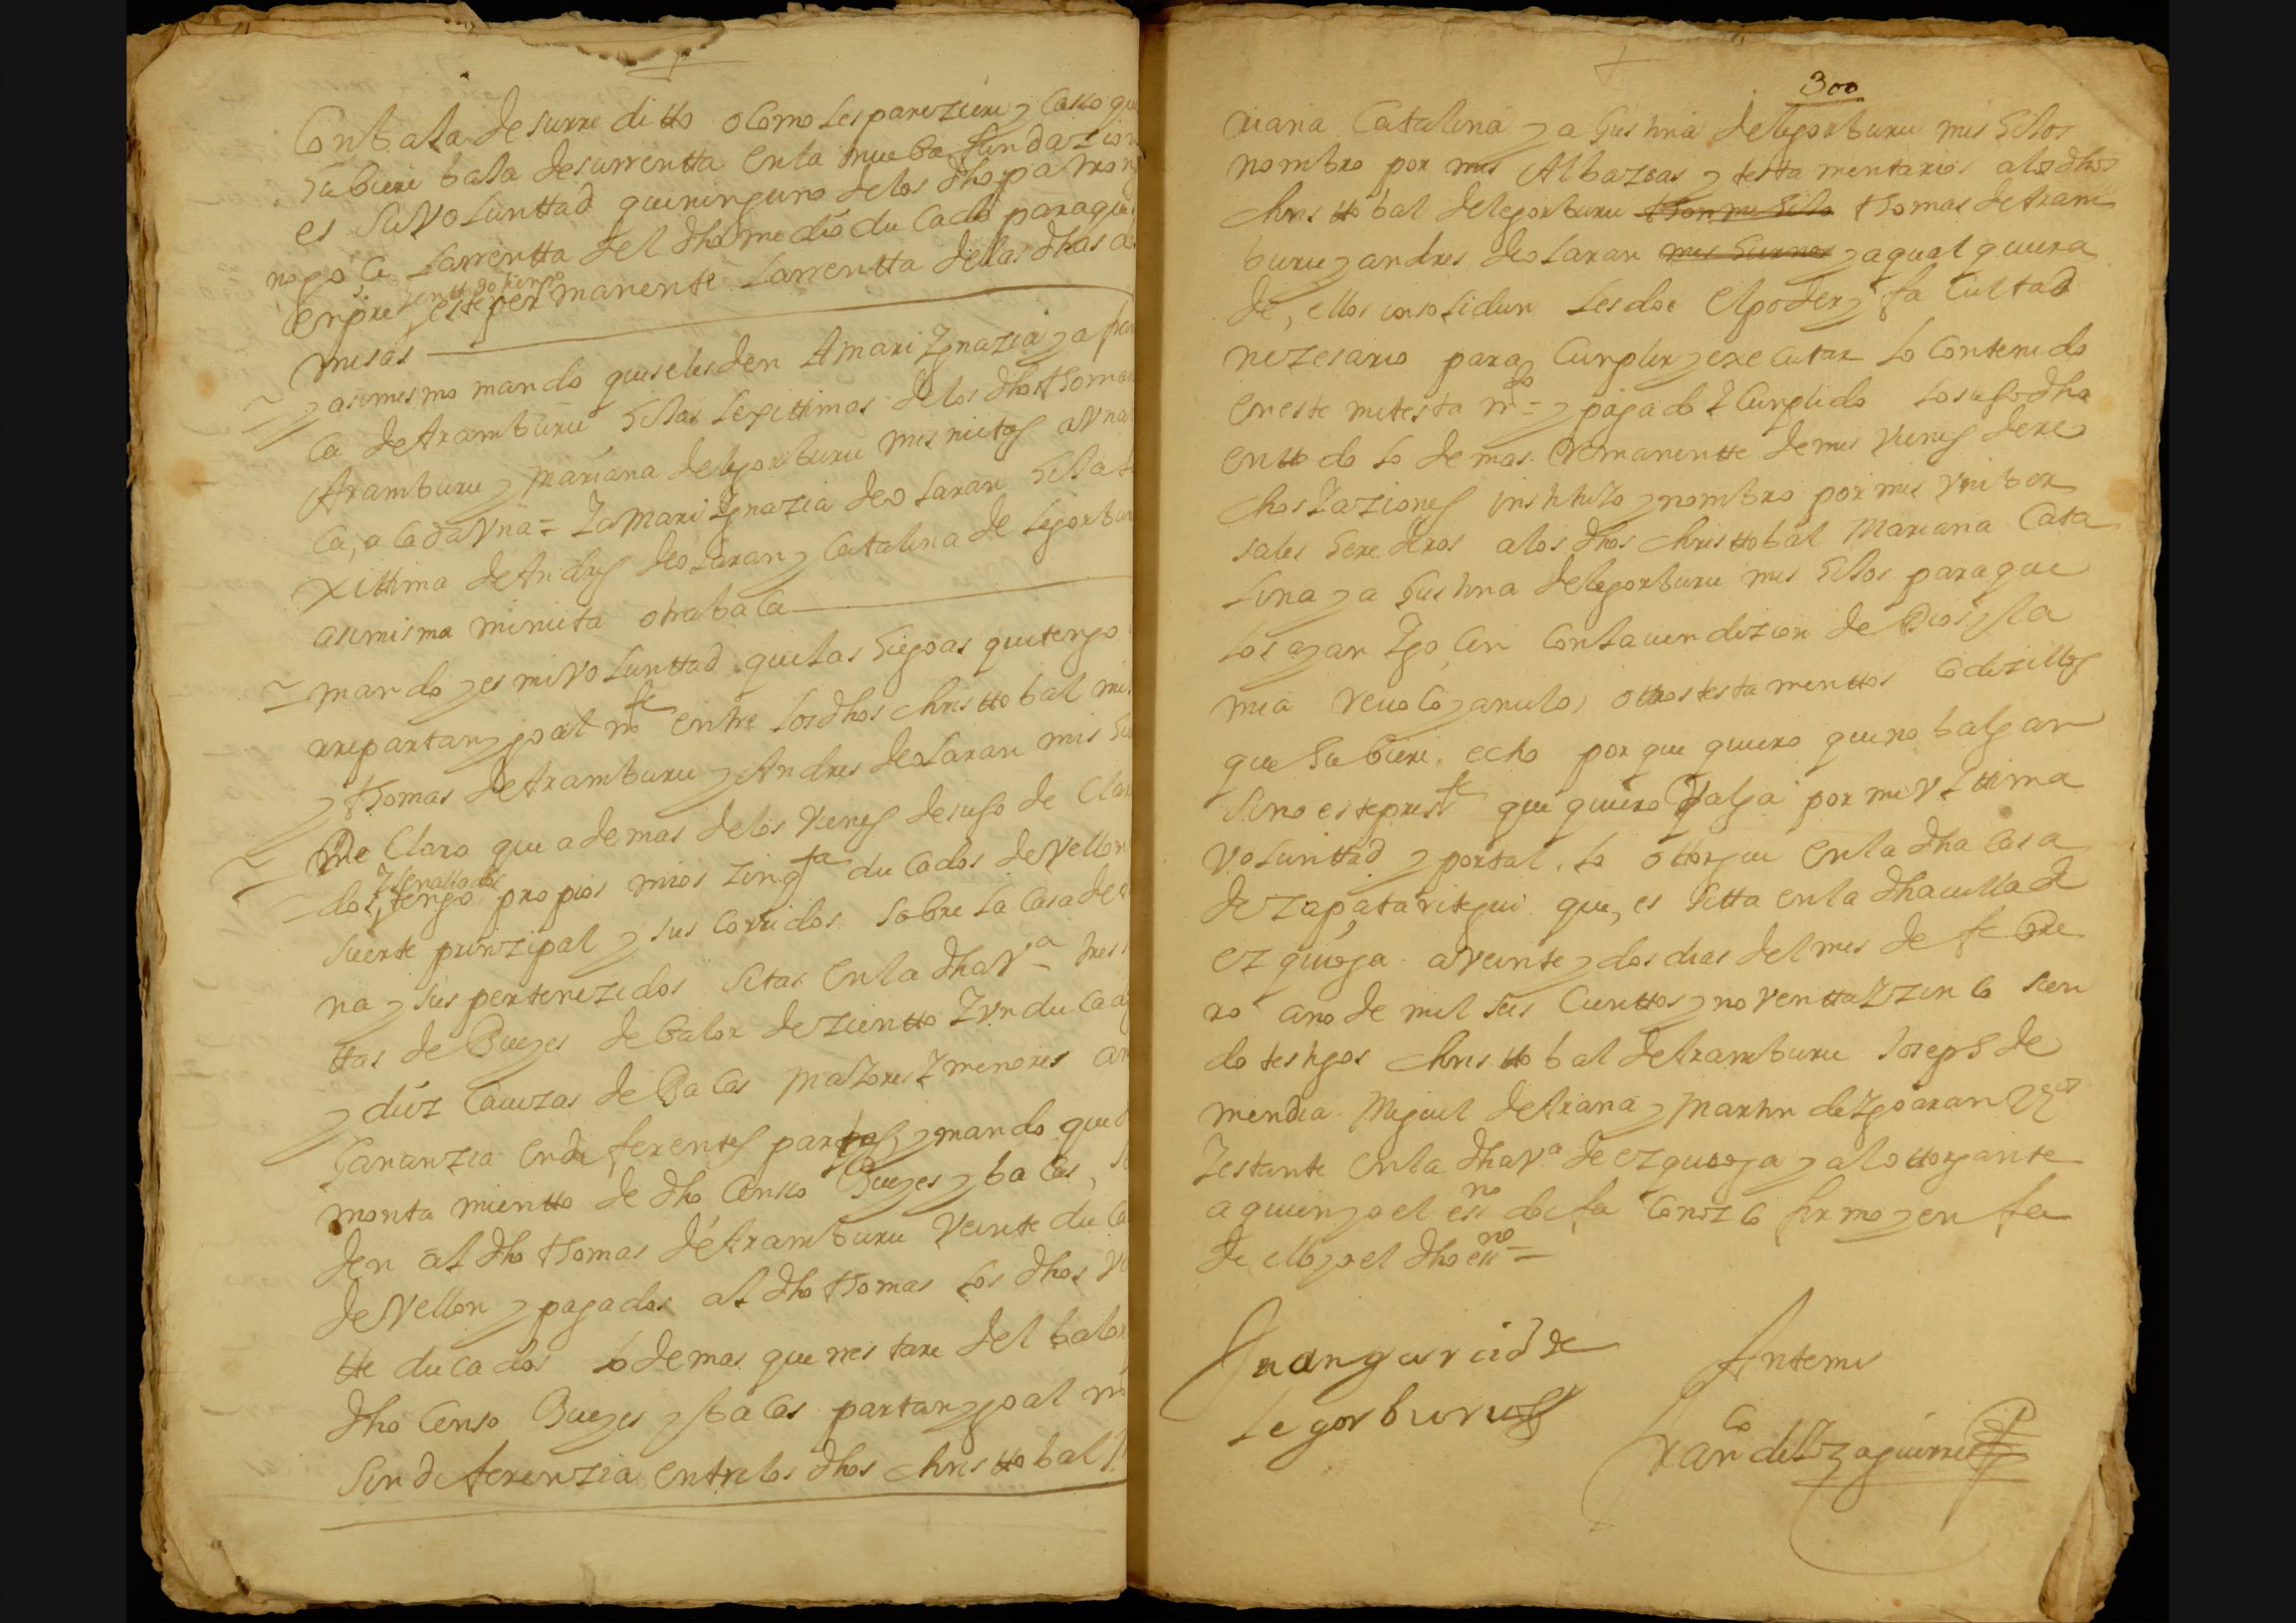 Con bala de su rre di tto o Como les pareziere y Casso que
hubiere bala de su rrentta en la nueba fundazion
es su voLunttad que ninguno de los dhos patron
no goçe Larrentta del dho medio ducado para que
en todo tienpo
enpre este permanente Larrentta de las dhas
misas
y asimesmo mando que se les den A mari Ygnazia y a fran
Ca de Aramburu hijas Lexittimas de los dhos thomas
Aramburu y Mariana de legorburu mis nietas a Vna
Ca, a Cada Vna = Ya Mari Ygnazia de oLaran hija Le
xittima de Andres de oLaran y Catalina de Legorbur
asimisma mi nieta otra baCa
mando y es mi voLunttad que las hiegoas que tengo
rrepartan ygoal mte entre Los dhos christtobal mi
y thomas de Aramburu y Andres de oLaran mis
De Claro que ademas de los Vienes de suso de Clar
Y senallados
dos, tengo propios mios Zinqta ducados de Vellon
suerte prinzipal y sus Corridos sobre La Casa de
na y sus pertenezidos sitas en la dha Va tres
ttas de Bueyes de balor de Zientto Y Vn ducad
y diez Cauezas de BaCas maYores Y menores a
Gananzia en diferentes partes, y mando que
monta mientto de dho Censso Bueyes y baCas,
den al dho thomas de Aramburu Veinte duCa
de Vellon y pagados al dho thomas Los dhos Ve
tte ducados Lo demas que rres tare del balor
dho Censo Bueyes y baCas partan ygoal m
sin diferenzia entre los dhos christtobal
300
riana Catalina y agustina de legorburu mis hijos
nombro por mis Albazeas y testa mentarios a los dhos
christtobal de legorburu thomas de Aram
buru y andres de oLaran mis hiernos y a qual quiera
de, ellos insolidun Les doi el poder y fa Cultad
nezesario para Cunplir y exe Cutar Lo Contenido
en este mi testa mto = y pagado Y Cunplido Lo suso dho
en tto do Lo de mas rremanentte de mis Vienes dere
chos Yaziones instituio y nombro por mis Vniber
sales herederos a los dhos christtobal Mariana Cata
Lina y agustina de legorburu mis hijos para que
Los ayan Ygoçen Con la vendizion de Dios y la
mia reuoCo y anulo, ottros testa menttos Codizillos
que hubiere echo por que quiero que no balgan
sino este preste que quiero Valga por mi Vlttima
voLunttad y por tal Lo ottorgue en la dha Casa
de zapataritegui que, es sitta en la dha villa de
ezquioga a Veinte y dos dias del mes de feBre
ro ano de mil seis Cienttos y noventta Y zinCo sien
do testigos christtobal de Aramburu Joseph de
mendia Miguel de Arana y Martin de Ygoaran Vos
Yestante en la dha Va de ezquioga y al ottorgante
a quien yo el essno doi fe ConozCo firmo y en fee
de ello yo el dho essno =
Juan garcia de
Legorburu
Antemi
Franco de Yzaguirre